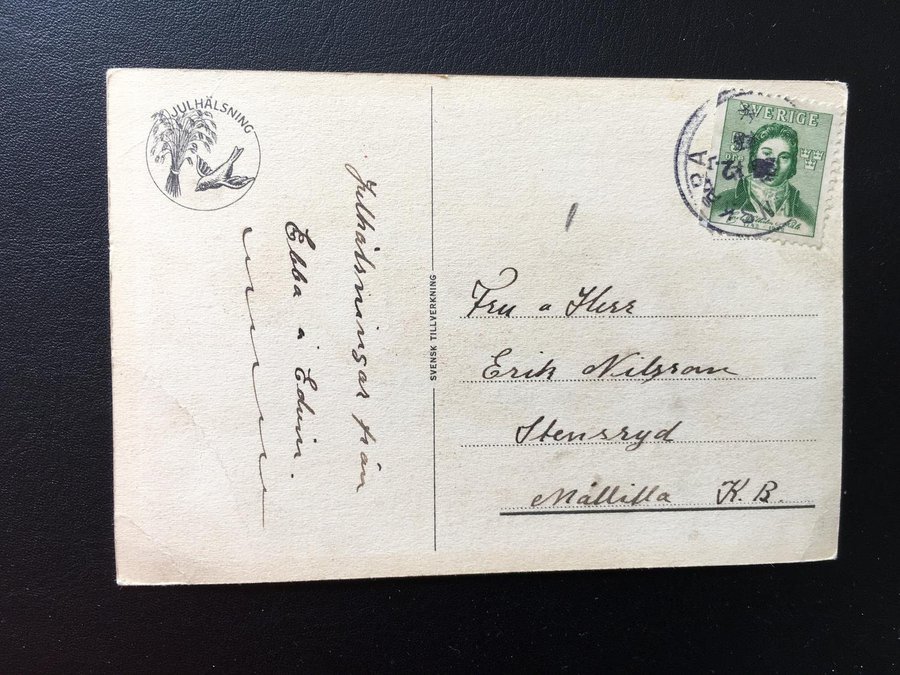 JULHÄLSNING
Julhälsningar från
Ebba a Edvin.
SVENSK TILLVERKNING
SVERIGE
Fru a Herr
Erik Nilsson
Stensryd
Målilla K.B.